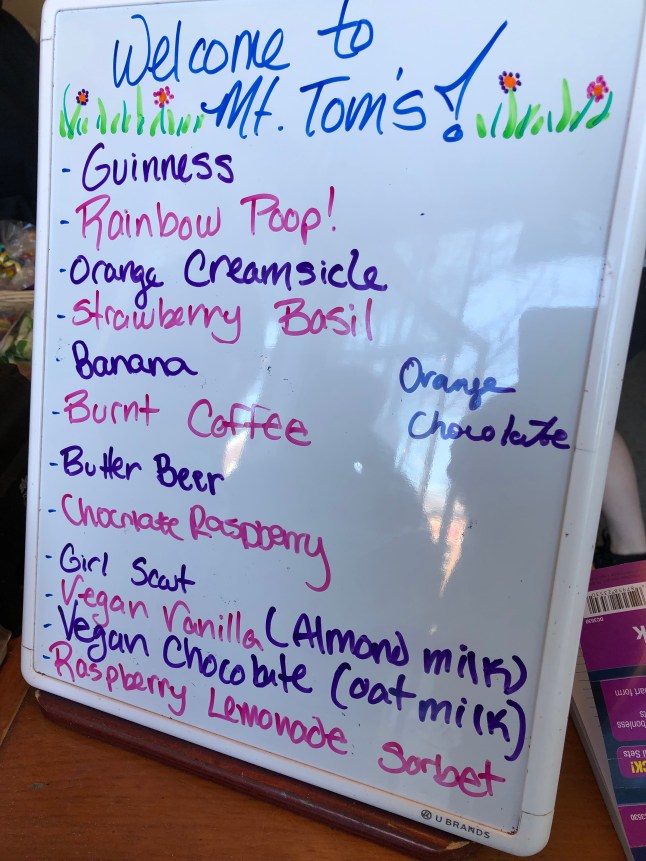 Welcome to
Mt. Tom's!
- Guinness
- Rainbow Poop!
- Orange Creamsicle
- Strawberry Basil
- Banana
Orange
- Burnt Coffee
Chocolate
- Butter Beer
- Chocolate Raspberry
- Girl Scout
- Vegan Vanilla (Almond milk)
- Vegan Chocolate (oat milk)
- Raspberry Lemonade Sorbet
U BRANDS